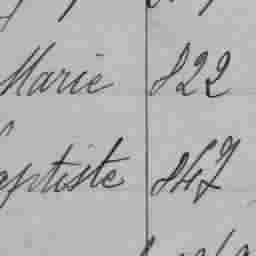 Marie 822
aptiste 847